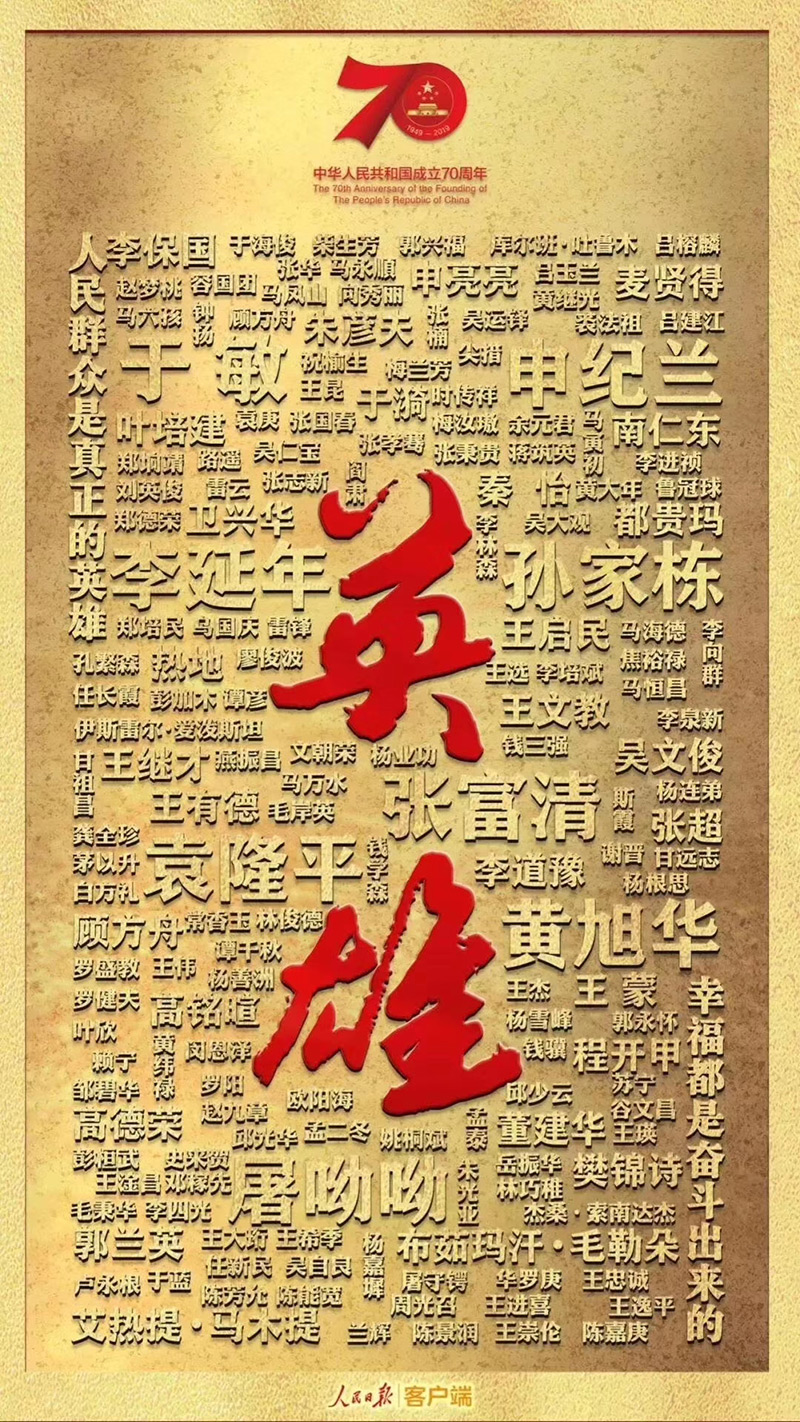 1949 – 2019
中华人民共和国成立70周年
The 70th Anniversary of the Founding of
The People's Republic of China
人民群众是真正的英雄
李保国 于海俊 柴生芳 郭兴福 库尔班·吐鲁木 吕榕麟
赵梦桃 容国团 张华 马永顺 申亮亮 吕玉兰 麦贤得
马六孩 钟扬 马凤山 向秀丽 黄继光
顾方舟 朱彦夫 张楠 吴运铎 裘法祖 吕建江
于敏 祝榆生 梅兰芳 申纪兰
王昆 于漪 时传祥
叶培建 袁庚 张国春 梅汝璈 余元君 马寅初 南仁东
郑垧靖 路遥 吴仁宝 张孝骞 张秉贵 蒋筑英 李进祯
刘英俊 雷云 张志新 阎肃 秦怡 黄大年 鲁冠球
郑德荣 卫兴华 李林森 吴大观 都贵玛
李延年 孙家栋
郑培民 乌国庆 雷锋 王启民 马海德 李向群
孔繁森 热地 廖俊波 王选 李培斌 焦裕禄
任长霞 彭加木 谭彦 王文教 马恒昌
伊斯雷尔·爱泼斯坦 李泉新
甘祖昌 王继才 燕振昌 文朝荣 杨业功 钱三强 吴文俊
王有德 马万水 毛岸英 张富清 斯霞 杨连弟
龚全珍 张超
茅以升 袁隆平 钱学森 李道豫 谢晋 甘远志
白万礼 杨根思
顾方舟 常香玉 林俊德 黄旭华
罗盛教 王伟 谭千秋 杨善洲
罗健夫 高铭暄 王杰 王蒙
叶欣 黄纬禄 闵恩泽 杨雪峰 郭永怀
赖宁 钱骥 程开甲
邹碧华 罗阳 欧阳海 邱少云 苏宁
高德荣 赵九章 孟泰 董建华 谷文昌
邱光华 孟二冬 姚桐斌 王瑛
彭桓武 史来贺 屠呦呦 朱光亚 岳振华 樊锦诗
王淦昌 邓稼先 林巧稚
毛秉华 李四光 杰桑·索南达杰
郭兰英 王大珩 王希季 杨嘉墀 布茹玛汗·毛勒朵
卢永根 于蓝 任新民 吴自良 屠守锷 华罗庚 王忠诚
陈芳允 陈能宽 周光召 王进喜 王逸平
艾热提·马木提 兰辉 陈景润 王崇伦 陈嘉庚
英雄
幸福都是奋斗出来的
人民日报 客户端